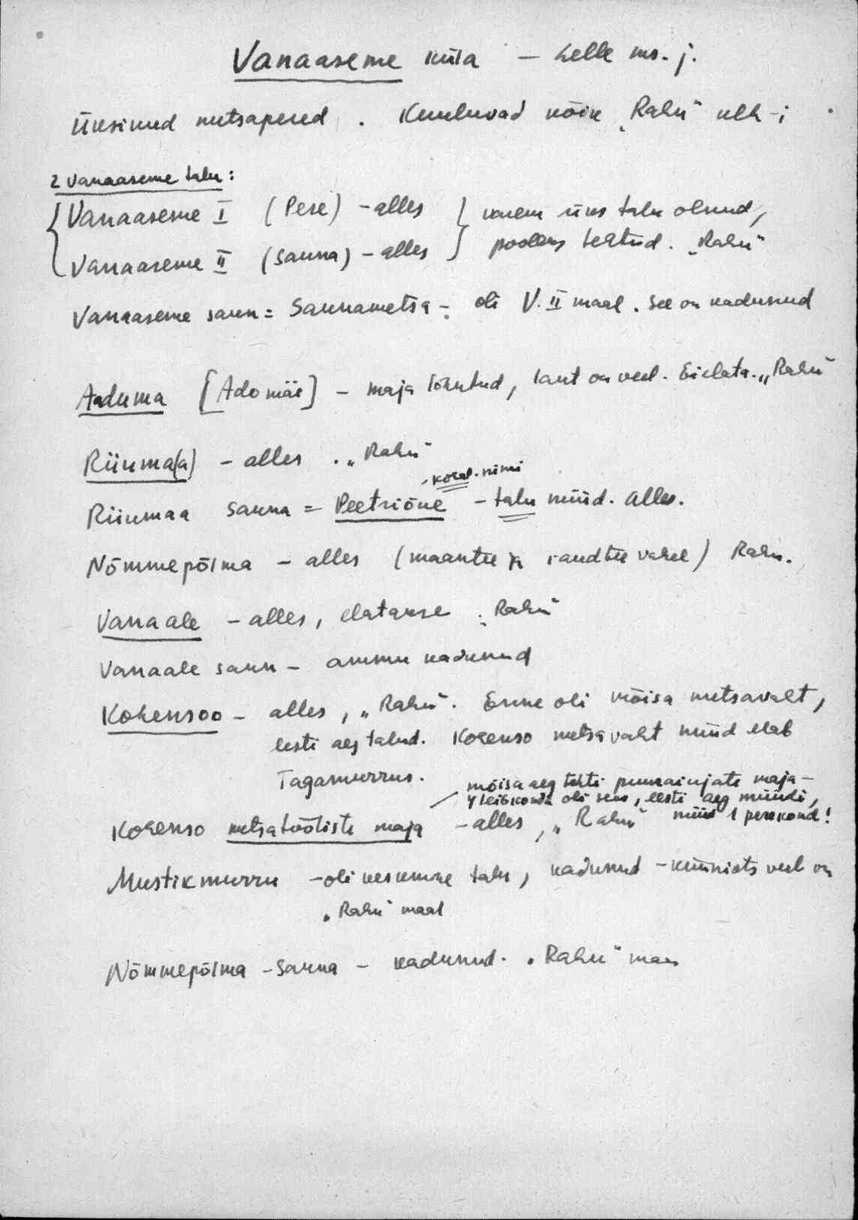 Vanaaseme küla – Lelle ms. j.
Üksinud metsapered. Kuuluvad kõik „Rahu" klh-i
2 Vanaaseme talu:
Vanaaseme I (Pere) – alles
Vanaaseme II (Sauna) – alles
varem üks talu olnud,
pooleks tehtud. „Rahu"
Vanaaseme saun = Saunametsa – oli V. II maal. See on kadunud
Aaduma [Adomäe] – maja lõhutud, laut on veel. Ei elata. „Rahu"
Riiuma(a) – alles. „Rahu"
, koral. nimi
Riiumaa sauna = Peetriõue – talu nüüd. Alles.
Nõmmepõlma – alles (maantee ja raudtee vahel) Rahu.
Vanaale – alles, elatakse. „Rahu"
Vanaale saun – ammu kadunud
Kokensoo – alles, „Rahu". Enne oli mõisa metsavaht,
eesti aeg talud. Kokenso metsavaht nüüd elab
Tagamurrus.
mõisa aeg tehti puuraiujate maja –
4 leibkonda oli sees, eesti aeg müüdi,
Kokenso metsatööliste maja – alles, „Rahu" nüüd 1 perekond!
Mustikmurru – oli keskmine talu, kadunud – küünists veel on
„Rahu" maal
Nõmmepõlma – sauna – kadunud. „Rahu" maa